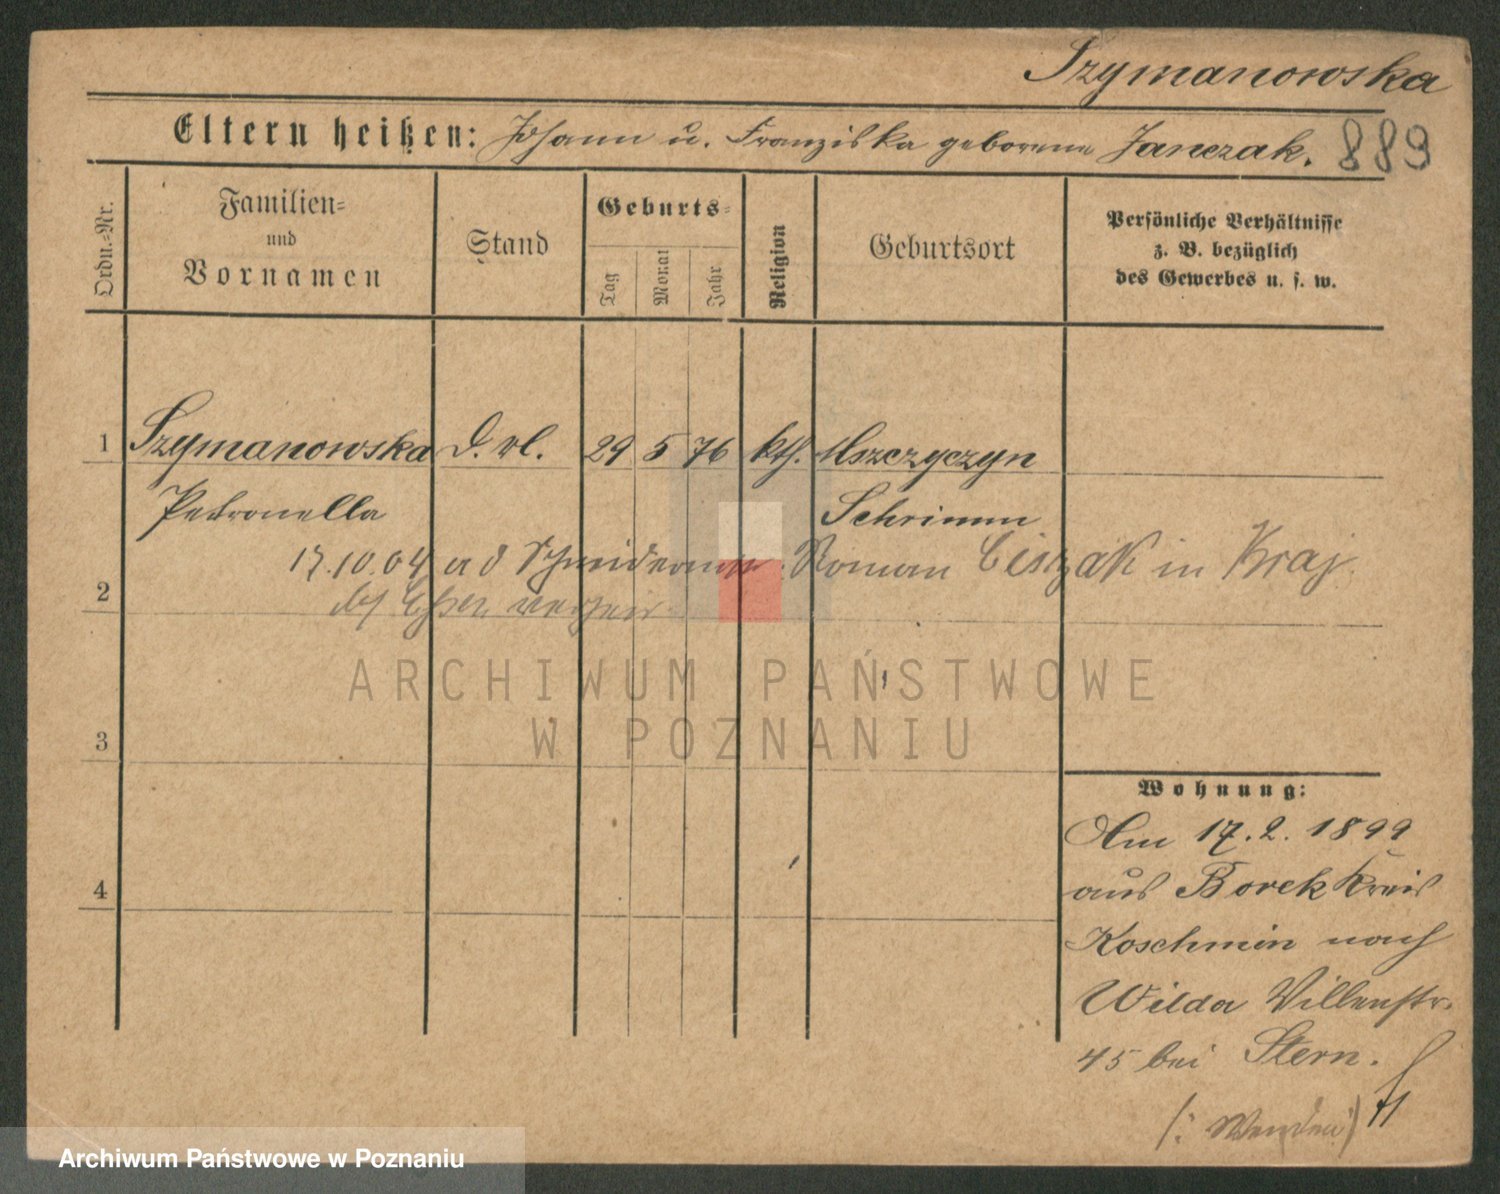 Szymanowska
Eltern heißen: Johann u. Franziska geborene Janczak. 889
Ordn.-Nr.
Familien-
und
Vornamen
Stand
Geburts-
Tag
Monat
Jahr
Religion
Geburtsort
Persönliche Verhältnisse
z. B. bezüglich
des Gewerbes u. s. w.
1 Szymanowska d. vl. 29 5 76 kth. Mszczyczyn
Petronella Schrimm
17.10.04 a d Roman Ciszak in Kraj
2
ARCHIWUM PAŃSTWOWE
W POZNANIU
3
Wohnung:
Am 17. 2. 1899
aus Borek Kreis
Koschmin nach
Wilda Villenstr.
45 bei Stern.
4
Archiwum Państwowe w Poznaniu